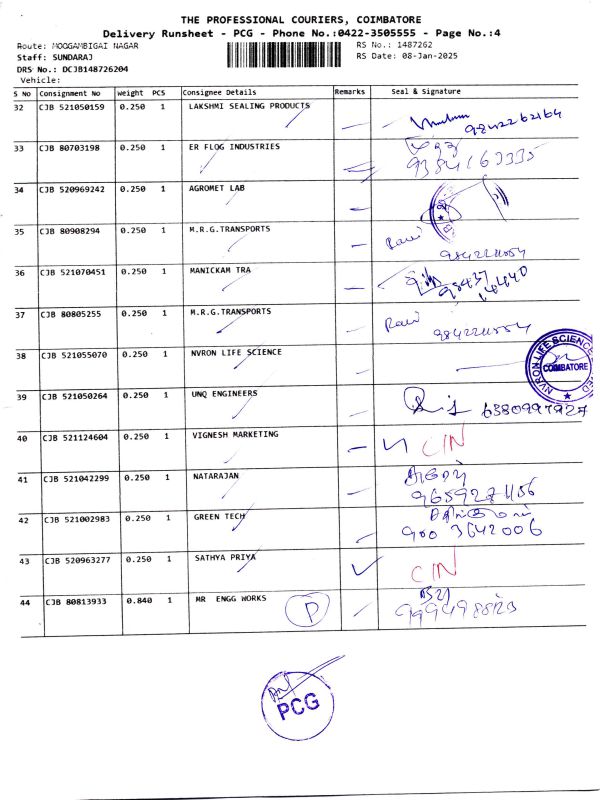 THE PROFESSIONAL COURIERS, COIMBATORE
Delivery Runsheet - PCG - Phone No.:0422-3505555 - Page No.:4
Route: MOOGAMBIGAI NAGAR RS No.: 1487262
Staff: SUNDARAJ RS Date: 08-Jan-2025
DRS No.: DCJB148726204
Vehicle:
S No Consignment No Weight PCS Consignee Details Remarks Seal & Signature
32 CJB 521050159 0.250 1 LAKSHMI SEALING PRODUCTS 9842262164
33 CJB 80703198 0.250 1 ER FLOG INDUSTRIES 9384163335
34 CJB 520969242 0.250 1 AGROMET LAB
35 CJB 80908294 0.250 1 M.R.G.TRANSPORTS Ravi
36 CJB 521070451 0.250 1 MANICKAM TRA 98437 14440
37 CJB 80805255 0.250 1 M.R.G.TRANSPORTS Ravi
38 CJB 521055070 0.250 1 NVRON LIFE SCIENCE NVRON LIFE SCIENCE COIMBATORE
39 CJB 521050264 0.250 1 UNQ ENGINEERS 6380997927
40 CJB 521124604 0.250 1 VIGNESH MARKETING CIN
41 CJB 521042299 0.250 1 NATARAJAN
42 CJB 521002983 0.250 1 GREEN TECH 900 3642006
43 CJB 520963277 0.250 1 SATHYA PRIYA CIN
44 CJB 80813933 0.840 1 MR ENGG WORKS P
PCG